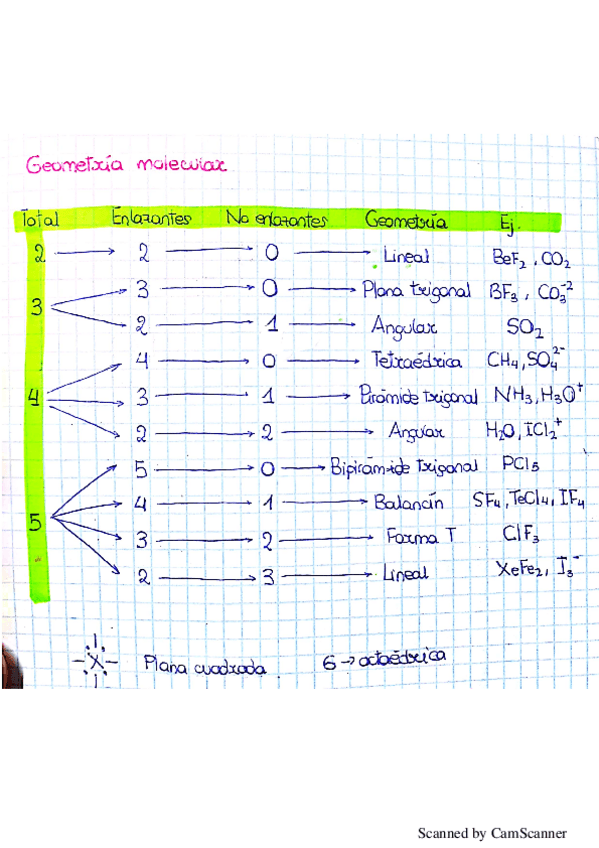 Geometría molecular
Total Enlazantes No enlazantes Geometría Ej.
2 → 2 → 0 → Lineal BeF₂, CO₂
3 → 3 → 0 → Plana trigonal BF₃, CO₃⁻²
→ 2 → 1 → Angular SO₂
4 → 4 → 0 → Tetraédrica CH₄, SO₄²⁻
→ 3 → 1 → Pirámide trigonal NH₃, H₃O⁺
→ 2 → 2 → Angular H₂O, ICl₂⁺
5 → 5 → 0 → Bipirámide trigonal PCl₅
→ 4 → 1 → Balancín SF₄, TeCl₄, IF₄
→ 3 → 2 → Forma T ClF₃
→ 2 → 3 → Lineal XeFe₂, I₃⁻
X Plana cuadrada 6 → octaédrica
Scanned by CamScanner